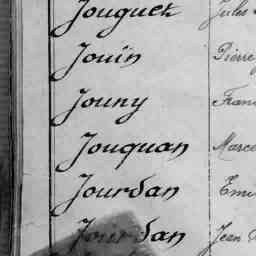 Jouguet Jules
Jouïn Pierre
Jouny Fran
Jouquan Marce
Jourdan Emi
Jourdan Jean